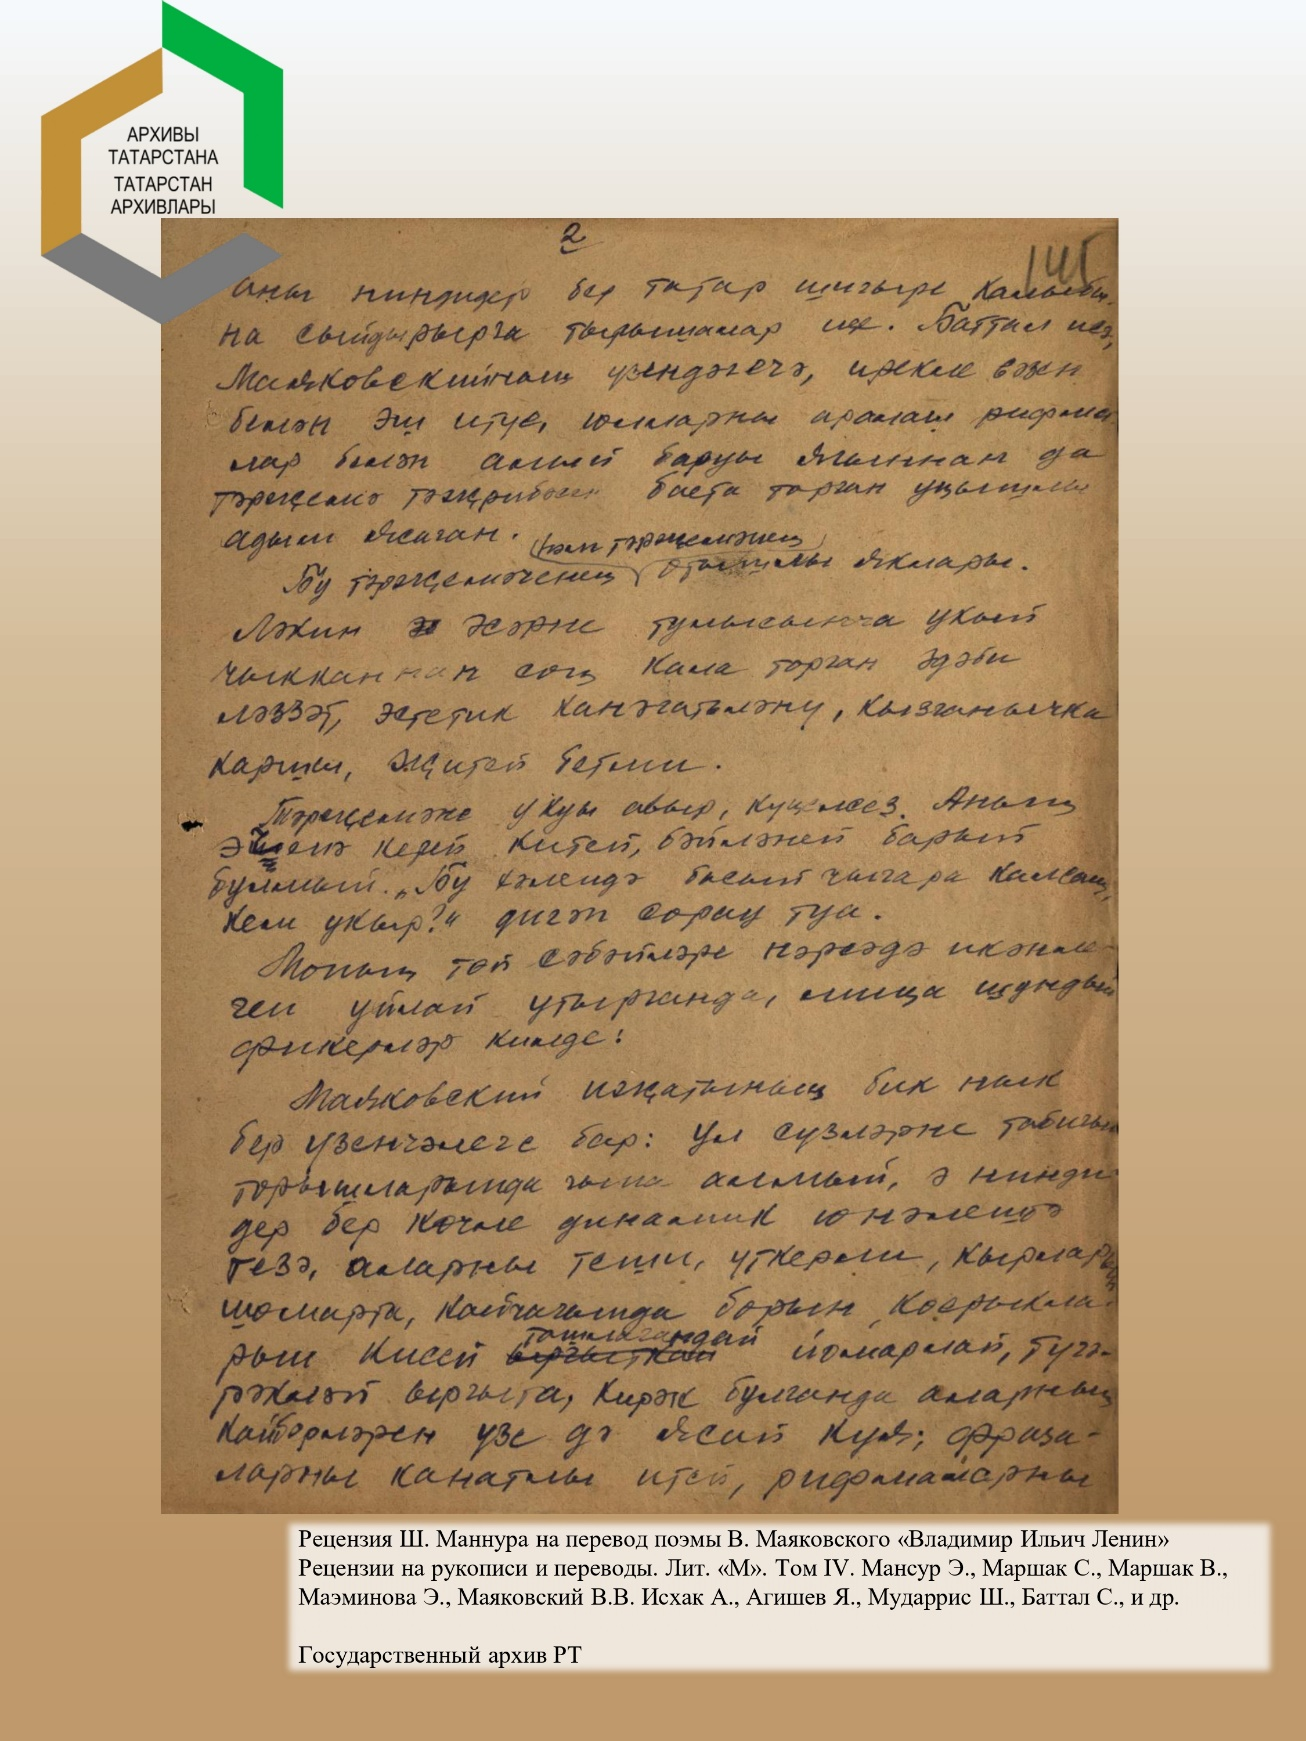 АРХИВЫ
ТАТАРСТАНА
ТАТАРСТАН
АРХИВЛАРЫ
2
145
Аны ниндидер бер татар шигыре калыбы-
на сыйдырырга тырышалар иде. Баттал исә,
Маяковскийның үзендәгечә, ирекле вәзн
белән эш итүе, юлларны аралаш рифма-
лар белән алып баруы ягыннан да
тәрҗемә тәҗрибәсен баста торган уңышлы
адым ясаган.
һәм тәрҗемәнең
Бу тәрҗемәченең отышлы яклары.
Ләкин әсәрне тулысынча укып
чыкканнан соң кала торган әдәби
ләззәт, эстетик канәгатьләнү, кызганычка
каршы, җитеп бетми.
Тәрҗемәне укуы авыр, күңелсез. Аның
эченә кереп китеп, бәйләнеп барып
булмый. „Бу хәлендә басып чыгара калсаң,
кем укыр?“ дигән сорау туа.
Моның төп сәбәпләре нәрсәдә икәнле-
ген уйлап утырганда, миңа шундый
фикерләр килде:
Маяковский иҗатының бик нык
бер үзенчәлеге бар: ул сүзләрне табигый
торышларында гына алмый, ә нинди-
дер бер көчле динамик юнәлештә
тезә, аларны теши, үткерли, кырларын
шомарта, кайчагында борын, койрыкла-
рын кисеп ташлагандай йомарлап, түгә-
рәкләп ыргыта, кирәк булганда аларның
кайберләрен үзе дә ясап куя; фраза-
ларны канатлы итеп, рифмаларны
Рецензия Ш. Маннура на перевод поэмы В. Маяковского «Владимир Ильич Ленин»
Рецензии на рукописи и переводы. Лит. «М». Том IV. Мансур Э., Маршак С., Маршак В.,
Маэминова Э., Маяковский В.В. Исхак А., Агишев Я., Мударрис Ш., Баттал С., и др.
Государственный архив РТ